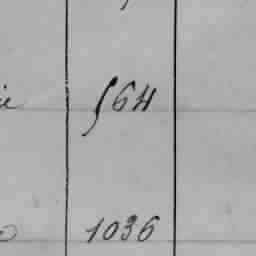 564
1036